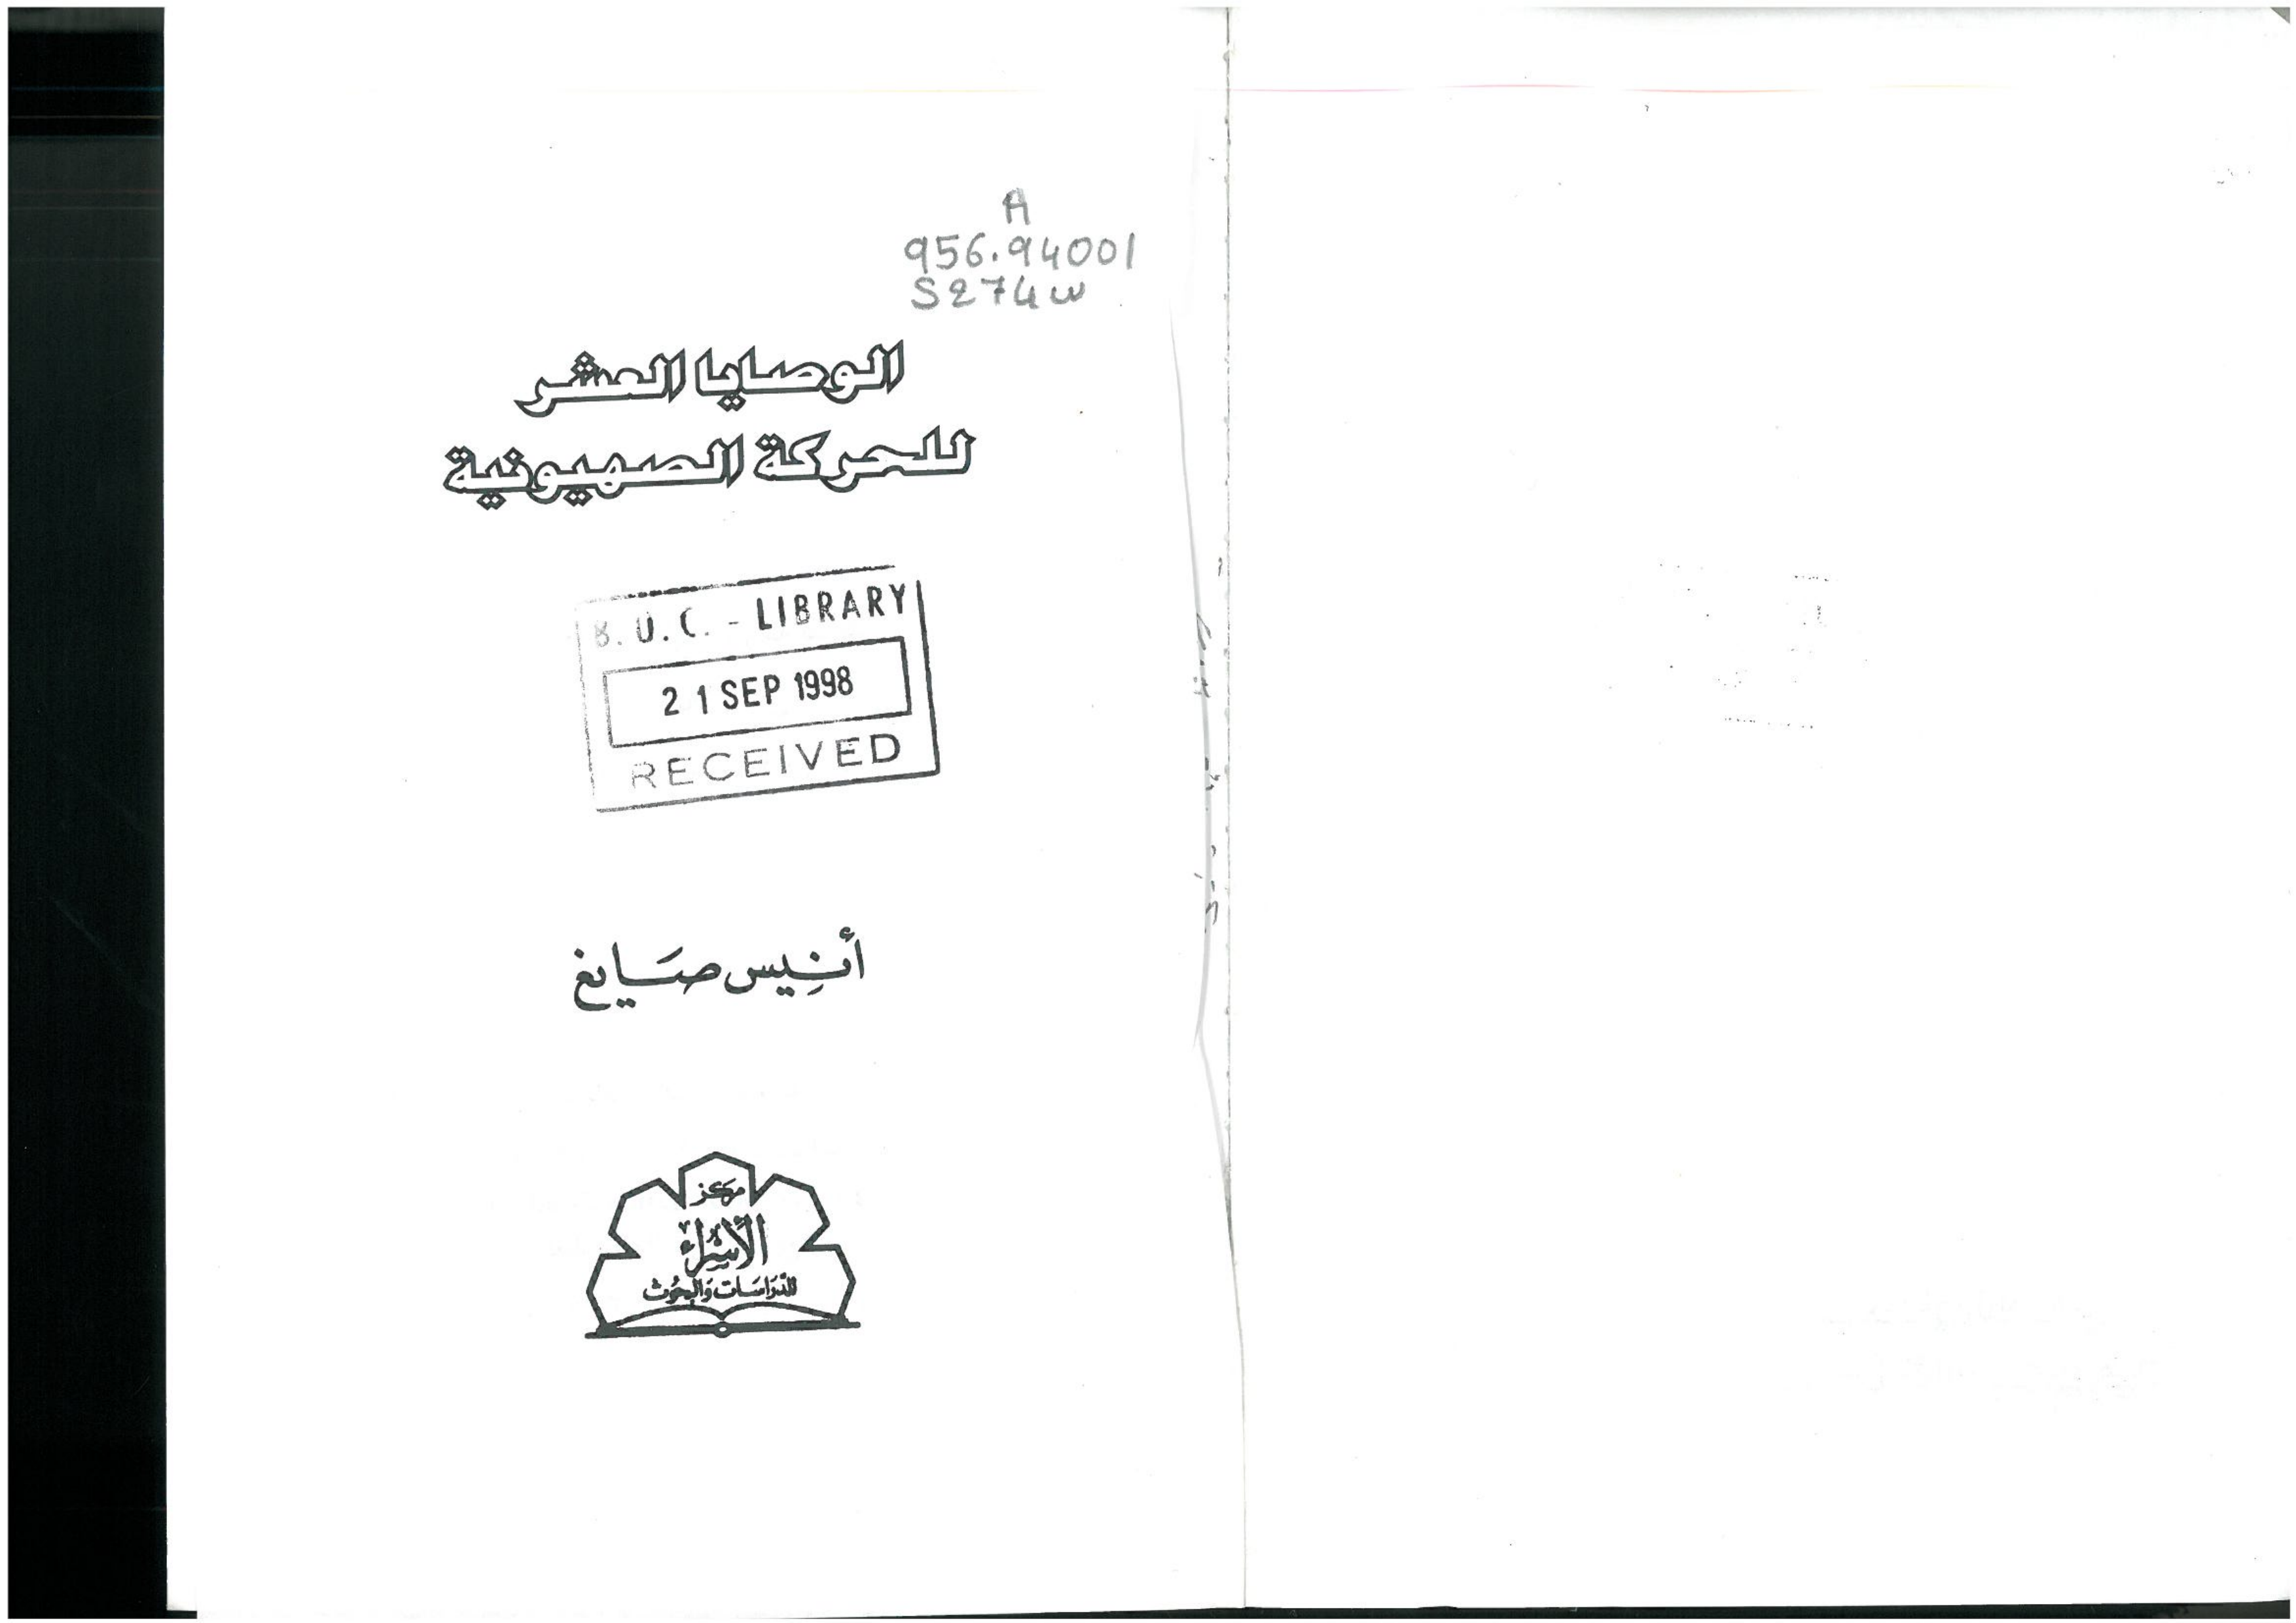 A
956.94001
S274w
الوصايا العشر
للحركة الصهيونية
B.U.C. - LIBRARY
21 SEP 1998
RECEIVED
أنِيس صَايغ
مركز
الأسراء
للدّراسَات وَالبحُوث